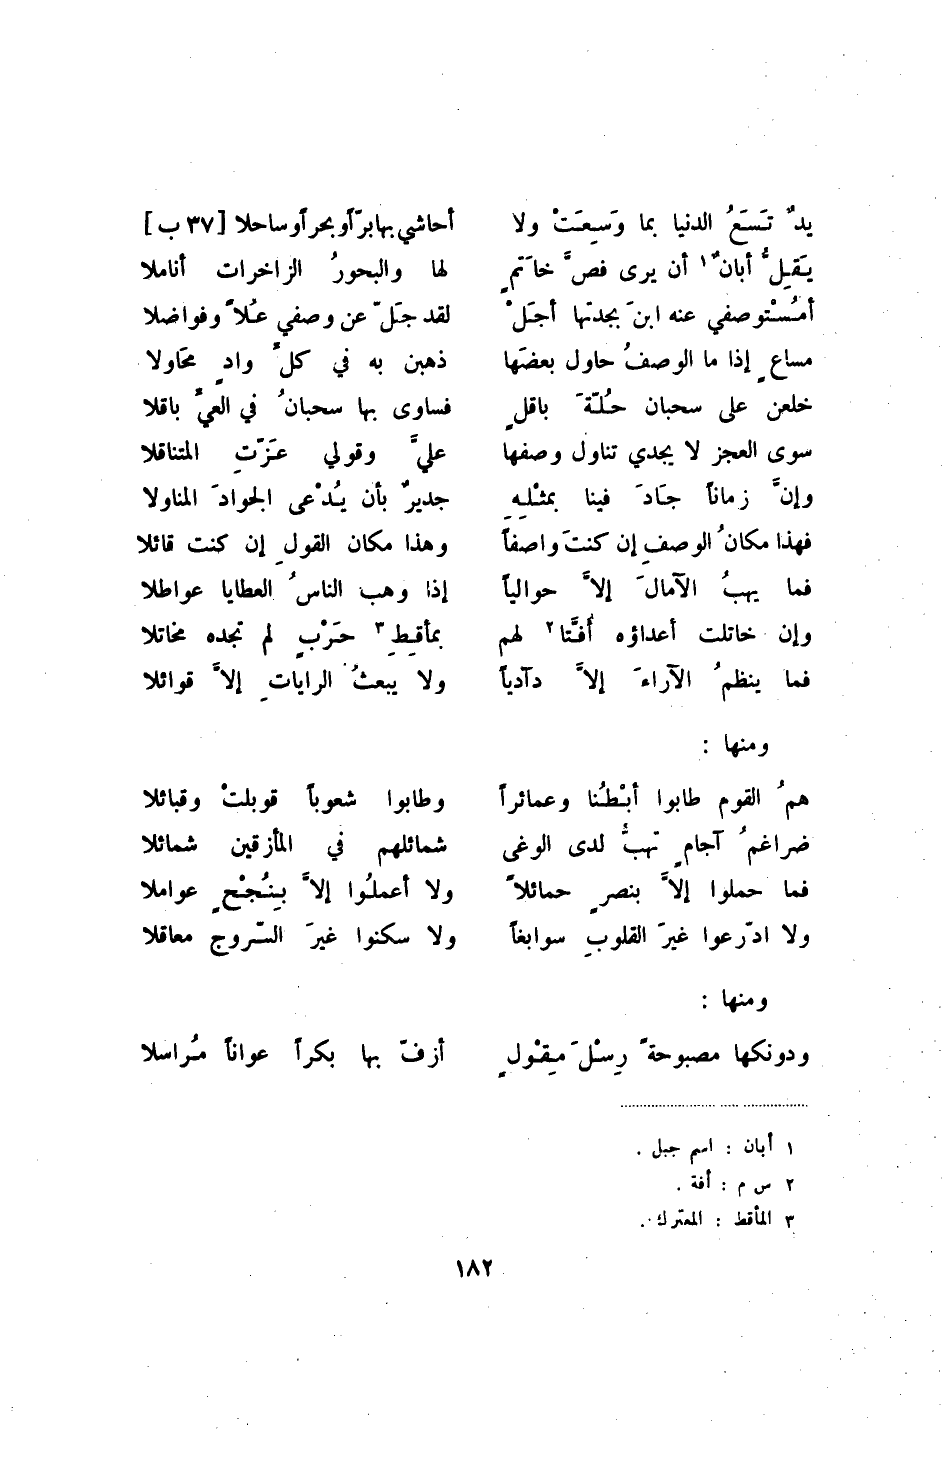 يدٌ تَسَعُ الدنيا بما وَسِعَتْ ولا أحاشي بها برّاً وبحراً وساحلا [٣٧ ب]
يَقِلُّ أبانٌ١ أن يرى فصَّ خاتَمٍ لها والبحورُ الزاخرات أناملا
أمُسْتوصفي عنه ابنَ بجدتها أجَلْ لقد جَلّ عن وصفي عُلاً وفواضلا
مساعٍ إذا ما الوصفُ حاول بعضَها ذهبن به في كلِّ وادٍ محَاولا
خلعن على سحبان حُلّةَ باقلٍ فساوى بها سحبانُ في العيِّ باقلا
سوى العجز لا يجدي تناول وصفها عليَّ وقولي عَزّتِ المتناقلا
وإنَّ زماناً جَادَ فينا بمثْلِهِ جديرٌ بأن يُدْعى الجوادَ المناولا
فهذا مكانُ الوصفِ إن كنتَ واصفاً وهذا مكان القولِ إن كنت قائلا
فما يهبُ الآمالَ إلاَّ حوالياً إذا وهب الناسُ العطايا عواطلا
وإن خاتلت أعداؤه أُفتَّا٢ لهم بمأقِطِ٣ حَرْبٍ لم تجده مخاتلا
فما ينظمُ الآراءَ إلاَّ دآدياً ولا يبعثُ الراياتِ إلاَّ قوائلا
ومنها :
همُ القوم طابوا أبْطُنا وعمائراً وطابوا شعوباً قوبلتْ وقبائلا
ضراغمُ آجامٍ تهبُّ لدى الوغى شمائلهم في المأزقين شمائلا
فما حملوا إلاَّ بنصرٍ حمائلاً ولا أعملُوا إلاَّ بِنُجْحٍ عواملا
ولا ادّرعوا غيرَ القلوبِ سوابغاً ولا سكنوا غيرَ السّروج معاقلا
ومنها :
ودونكها مصبوحةً رِسْلَ مِقْولٍ أزفّ بها بكراً عواناً مُراسلا
١ أبان : اسم جبل .
٢ س م : أفة .
٣ المأقط : المعترك .
١٨٢